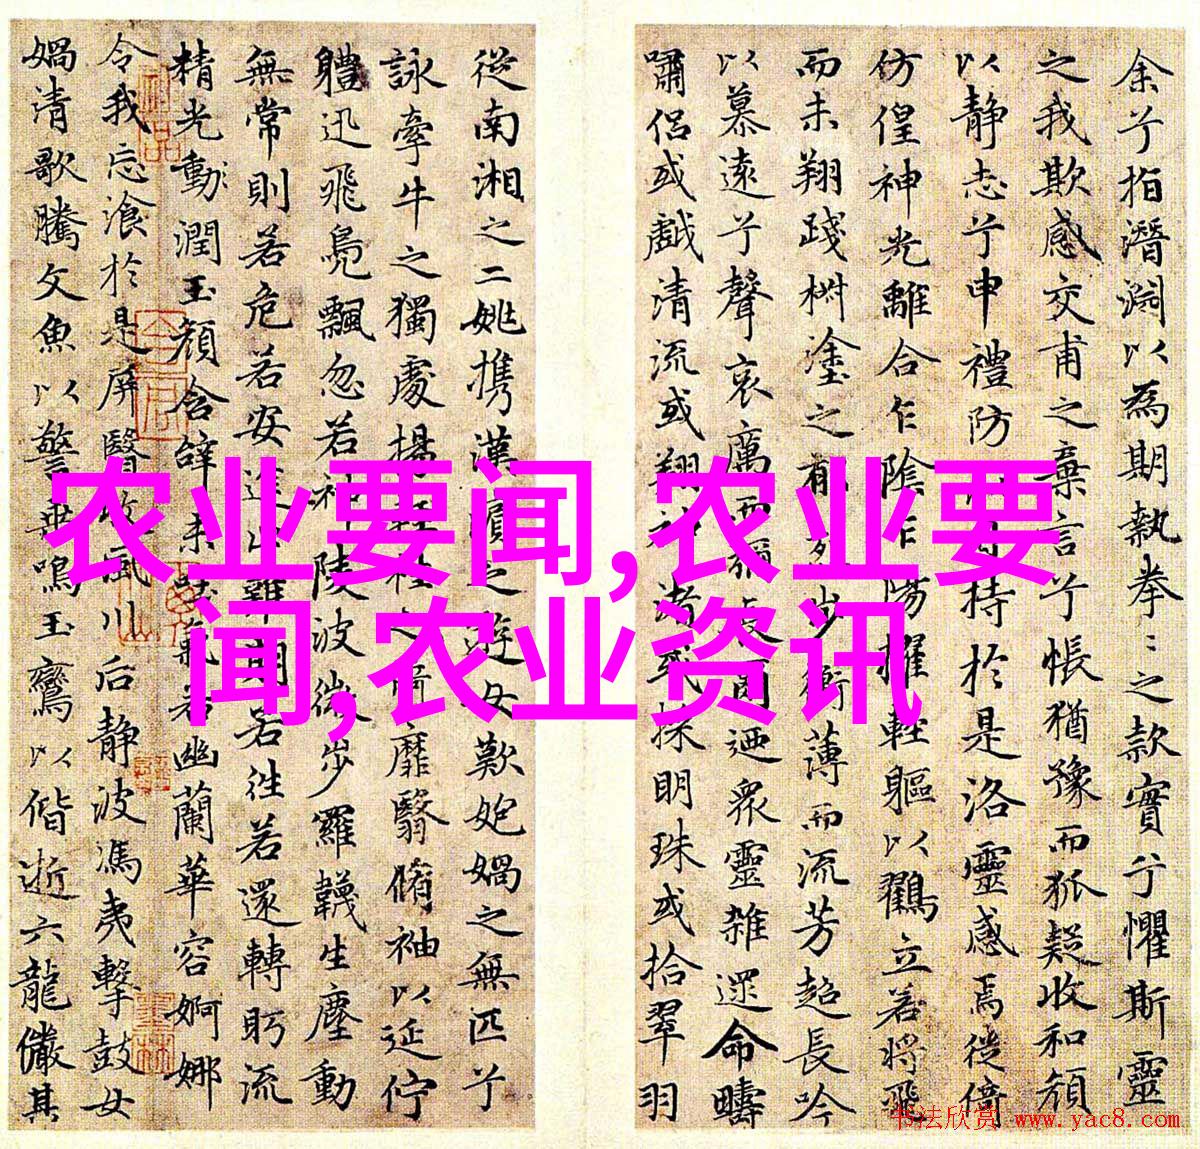 余兮指潜淵以為期執拳〻之款實兮懼斯靈
之我欺感交甫之棄言兮悵猶豫而狐疑收和顔
以静志兮申禮防 持於是洛靈感焉徙倚
仿偟神光離合乍陰乍陽擢輕軀以鸖立若將飛
而未翔踐椒塗之 薄而流芳超長吟
以慕遠兮聲哀厲而彌 迺眾靈雜遝命疇
嘯侣或戲清流或翔神渚或採明珠或拾翠羽
從南湘之二姚携漢濱之遊女歎妑媧之無匹兮
詠牽牛之獨處揚 靡翳脩袖以延佇
軆迅飛鳧飄忽若神陵波微步羅韈生塵動
無常則若危若安進止難期若往若還轉眄流
精光動潤玉顔含辝未 氣若幽蘭華容婀娜
令我忘飡於是屏翳收風川后静波馮夷擊鼓女
媧清歌騰文魚以警乗鳴玉鸞以偕逝六龍儼其
农业要闻,农业要
闻,农业资讯
书法欣赏 www.yac8.com